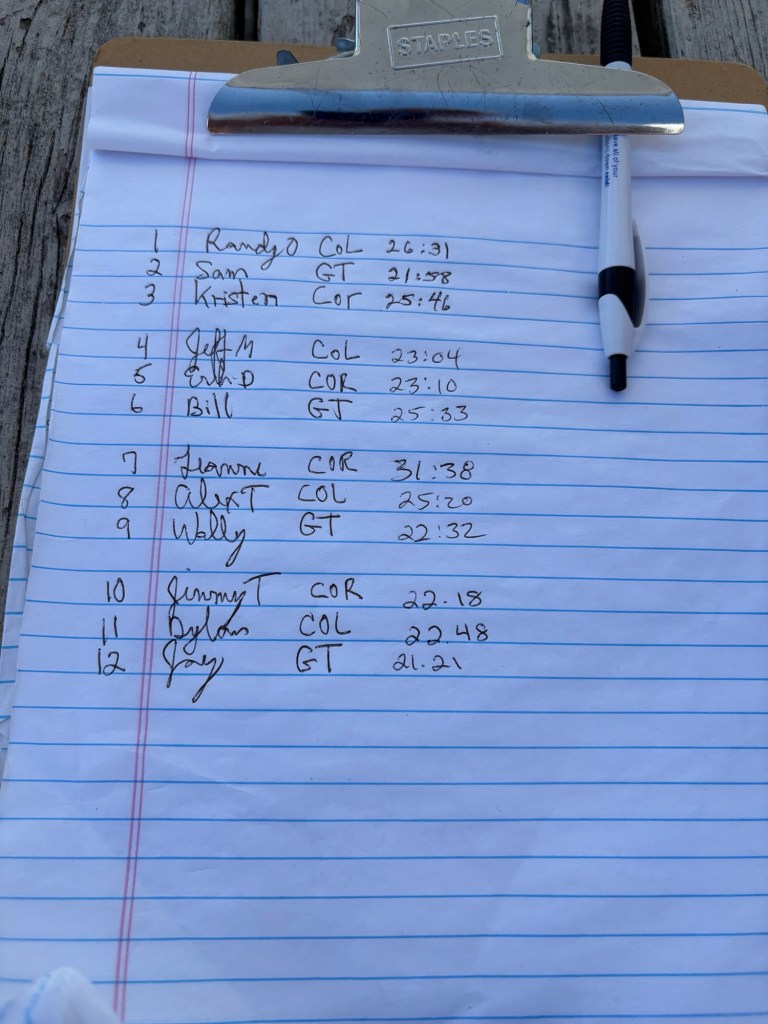 STAPLES
1 Randy O COL 26:31
2 Sam GT 21:58
3 Kristen Cor 25:46
4 Jeff M COL 23:04
5 Erh D COR 23:10
6 Bill GT 25:33
7 Jeanne COR 31:38
8 Alex T COL 25:20
9 Wally GT 22:32
10 Jimmy T COR 22.18
11 Dylan COL 22.48
12 Jay GT 21.21